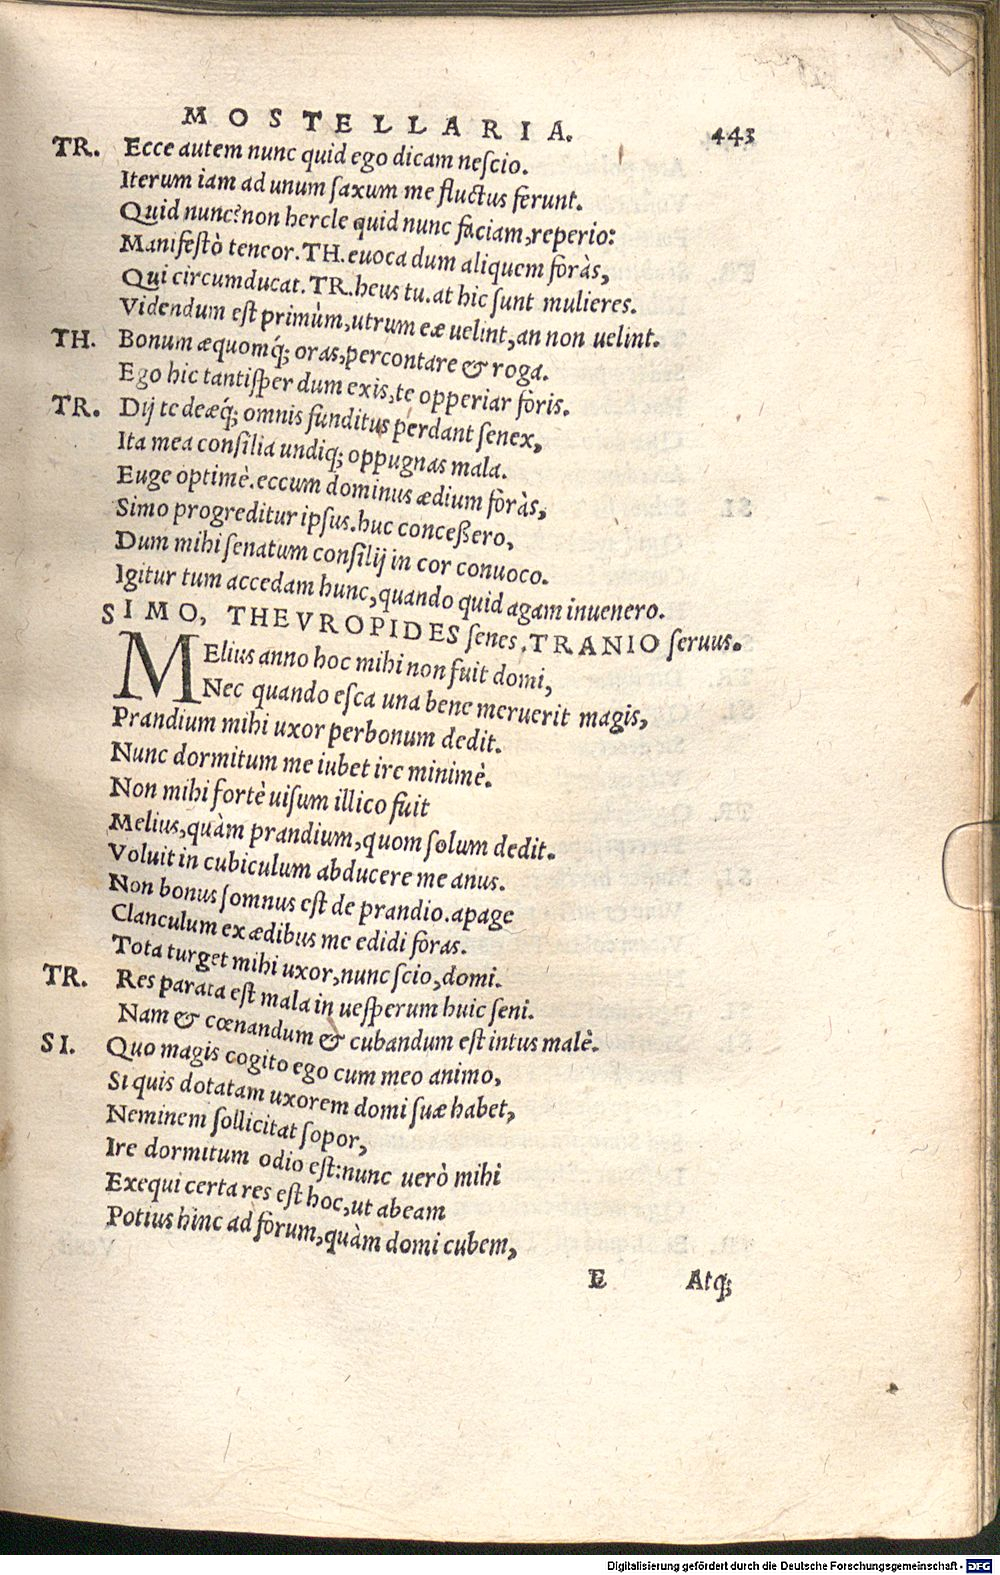 MOSTELLARIA. 443
TR. Ecce autem nunc quid ego dicam nescio.
Iterum iam ad unum saxum me fluctus ferunt.
Quid nunc? non hercle quid nunc faciam, reperio:
Manifestò teneor. TH. euoca dum aliquem foràs,
Qui circumducat. TR. heus tu. at hic sunt mulieres.
Videndum est primùm, utrum eæ uelint, an non uelint.
TH. Bonum æquomq́; oras, percontare & roga.
Ego hic tantisper dum exis, te opperiar foris.
TR. Dij te deæq́; omnis funditus perdant senex,
Ita mea consilia undiq; oppugnas mala.
Euge optimè. eccum dominus ædium foràs,
Simo progreditur ipsus. huc conceßero,
Dum mihi senatum consilij in cor conuoco.
Igitur tum accedam hunc, quando quid agam inuenero.
SIMO, THEVROPIDES senes, TRANIO seruus.
MElius anno hoc mihi non fuit domi,
Nec quando esca una bene meruerit magis,
Prandium mihi uxor perbonum dedit.
Nunc dormitum me iubet ire minimè.
Non mihi fortè uisum illico fuit
Melius, quàm prandium, quom solum dedit.
Voluit in cubiculum abducere me anus.
Non bonus somnus est de prandio. apage
Clanculum ex ædibus me edidi foras.
Tota turget mihi uxor, nunc scio, domi.
TR. Res parata est mala in uesperum huic seni.
Nam & cœnandum & cubandum est intus malè.
SI. Quo magis cogito ego cum meo animo,
Si quis dotatam uxorem domi suæ habet,
Neminem sollicitat sopor,
Ire dormitum odio est: nunc uerò mihi
Exequi certa res est hoc, ut abeam
Potius hinc ad forum, quàm domi cubem,
E Atq;
Digitalisierung gefördert durch die Deutsche Forschungsgemeinschaft - DFG